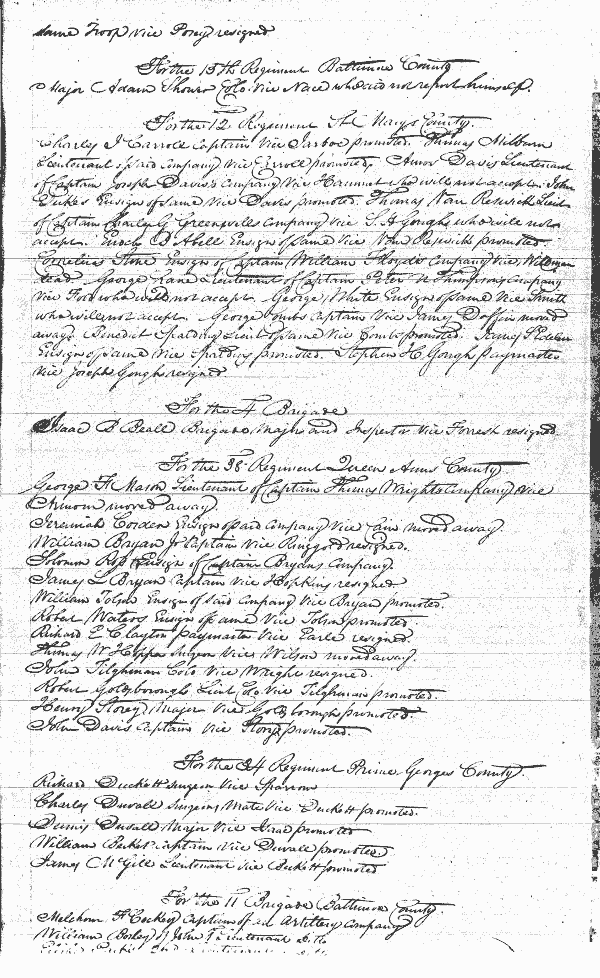 same Troop vice Posey resigned
For the 15th Regiment Baltimore County
Major Adam Showr Colo. Vice Nace who did not report himself.
For the 12 Regiment St. Marys County.
Charles J Carroll Captain Vice Jarboe promoted. Thomas Milburn
Lieutenant of said Company Vice Carroll promoted. Davis Lieutenant
of Captain Joseph Davis's Company Vice who will not accept. John
Ensign of same Vice Davis promoted. Thomas Van Reswick Lieut
of Captain Charles G Greenwells Company vice S. H Gough who will not
accept. Enoch B Abell Ensign of same Vice Van Reswick promoted.
Cornelius Stone Ensign of Captain William Company Vice, Wildman
dead. George Lane Lieutenant of Captain Peter W Thompsons Company
Vice Ford who will not accept. George White Ensign of same Vice Smith
who will not accept. George Combs Captain Vice James Daffin moved
away. Benedict Spalding Lieut of same Vice Combs promoted. James S Edelen
Ensign of same Vice Spalding promoted. Stephen H. Gough Paymaster
Vice Joseph Gough resigned
For the 4 Brigade
Isaac B Beall Brigade Major and Inspector Vice Forrest resigned
For the 38 Regiment Queen Anns County
George F. Mason Lieutenant of Captain Thomas Wrights Company Vice
moved away.
Jeremiah Corden Ensign of said Company Vice moved away.
William Bryan Jr Captain Vice Ringgold resigned.
Solomon Ensign of Captain Bryans Company.
James L Bryan Captain Vice Hopkins resigned
William Tolson Ensign of said Company Vice Bryan promoted.
Robert Waters Ensign of same Vice Tolson promoted.
Richard E Clayton Paymaster Vice Earle resigned.
Thomas W Hopper Surgeon Vice Wilson moved away.
John Tilghman Colo Vice Wright resigned.
Robert Goldsborough Lieut Colo. Vice Tilghman promoted.
Henry Storey Major Vice Goldsborough promoted.
John Davis Captain Vice Storey promoted.
For the 34 Regiment Prince Georges County.
Richard Duckett Surgeon Vice Sparrow
Charles Duvall Surgeons Mate Vice Duckett promoted.
Dennis Duvall Major Vice promoted
William Beckett Captain Vice Duvall promoted
James McGill Lieutenant Vice Beckett promoted
For the 11 Brigade Baltimore County.
Melchour F Cockey Captain of an Artillery Company
William Bosley of John 1st Lieutenant ditto
2nd Lieutenant ditto